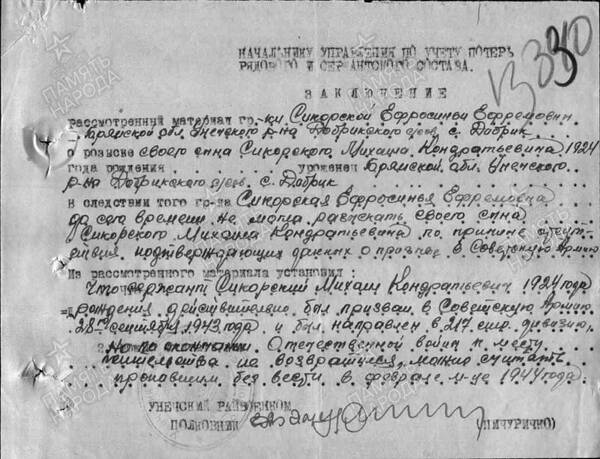 В 330
НАЧАЛЬНИКУ УПРАВЛЕНИЯ ПО УЧЕТУ ПОТЕРЬ
РЯДОВОГО И СЕРЖАНТСКОГО СОСТАВА.
ЗАКЛЮЧЕНИЕ
рассмотренный материал гр-ки Сикорской Ефросиньи Ефремовны
Брянской обл. Унечского р-на Добрикского с/сов. с. Добрик
о розыске своего сына Сикорского Михаила Кондратьевича 1924
года рождения уроженец Брянской обл. Унечского
р-на Добрикского с/сов. с. Добрик
в следствии того гр-ка Сикорская Ефросинья Ефремовна
до сего времени не могла разыскать своего сына
Сикорского Михаила Кондратьевича по причине отсут-
ствия подтверждающих данных о призыве в Советскую Армию
Из рассмотренного материала установил:
Что сержант Сикорский Михаил Кондратьевич 1924 года
рождения действительно был призван в Советскую Армию
28 сентября 1943 года и был направлен в 217 стр. дивизию,
Но по окончании Отечественной войны к месту
жительства не возвратился, можно считать
пропавшим без вести в феврале м-це 1944 года.
УНЕЧСКИЙ РАЙВОЕНКОМ
ПОЛКОВНИК
(ПИЧУРИЧКО)
ПАМЯТЬ
НАРОДА